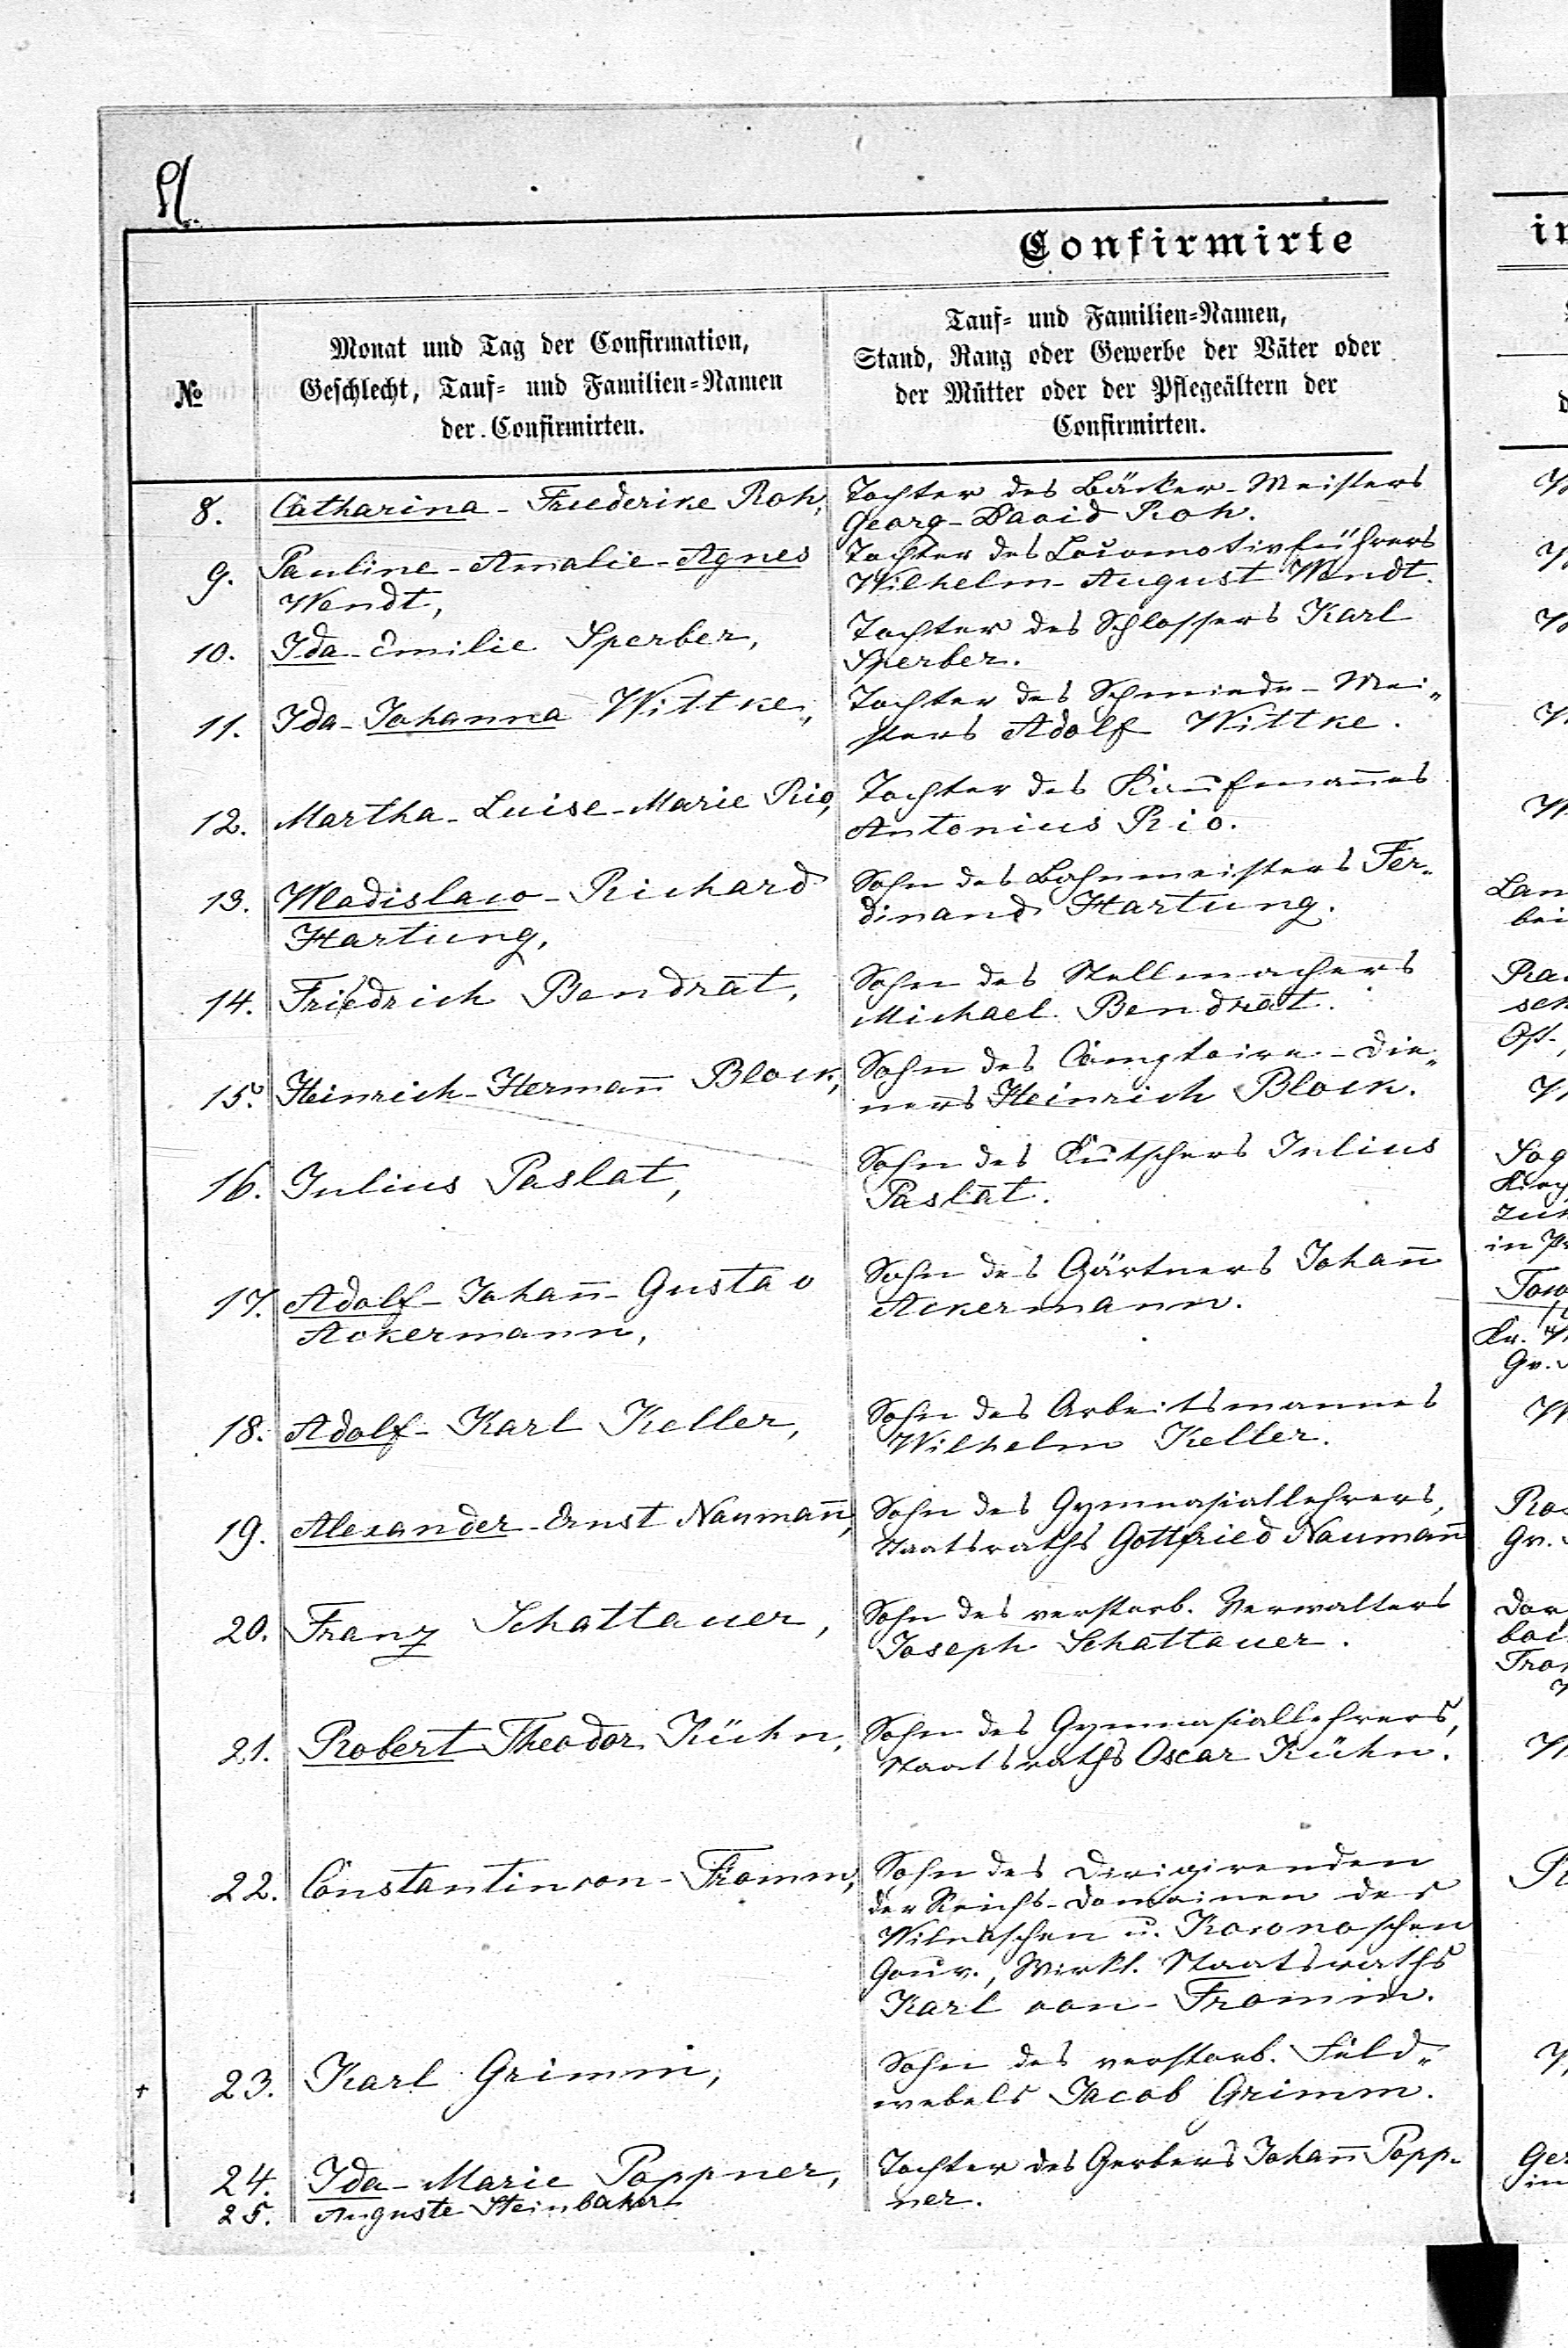 Confirmirte
№
Monat und Tag der Confirmation,
Geschlecht, Tauf- und Familien-Namen
der Confirmirten.
Tauf- und Familien-Namen,
Stand, Rang oder Gewerbe der Väter oder
der Mütter oder der Pflegeältern der
Confirmirten.
8. Catharina-Friederike Roh,
Tochter des Bäcker-Meisters
Georg-David Roh.
9. Pauline-Amalie-Agnes
Wendt,
Tochter des Locomotivführers
Wilhelm-August Wendt.
10. Ida-Emilie Sperber,
Tochter des Schlossers Karl
Sperber.
11. Ida-Johanna Wittke,
Tochter des Schmiede-Mei-
sters Adolf Wittke.
12. Martha-Luise-Marie Rio,
Tochter des Kaufmañes
Antonius Rio.
13. Wladislaw-Richard
Hartung,
Sohn des Bahnmeisters Fer-
dinand Hartung.
14. Friedrich Bendrat,
Sohn des Stellmachers
Michael Bendrat.
15. Heinrich-Hermañ Block,
Sohn des Comptoire-Die-
ners Heinrich Block.
16. Julius Paslat,
Sohn des Kutschers Julius
Paslat.
17. Adolf-Johañ-Gustav
Ackermann,
Sohn des Gärtners Johañ
Ackermann.
18. Adolf-Karl Keller,
Sohn des Arbeitsmannes
Wilhelm Keller.
19. Alexander-Ernst Naumañ,
Sohn des Gymnasiallehrers,
Staatsraths Gottfried Naumañ
20. Franz Schattauer,
Sohn des verstorb. Verwalters
Joseph Schattauer.
21. Robert Theodor Kühn,
Sohn des Gymnasiallehrers,
Staatsraths Oscar Kühn.
22. Constantin von-Fromm,
Sohn des Dirigirenden
der Reichs-Domainen des
Wilnaschen u. Kownoschen
Gouv., Wirkl. Staatsraths
Karl von-Fromm.
23. Karl Grimm,
Sohn des verstorb. Feld-
webels Jacob Grimm.
24. Ida-Marie Poppner,
Tochter des Gerbers Johañ Popp-
ner.
25. Auguste Steinbach